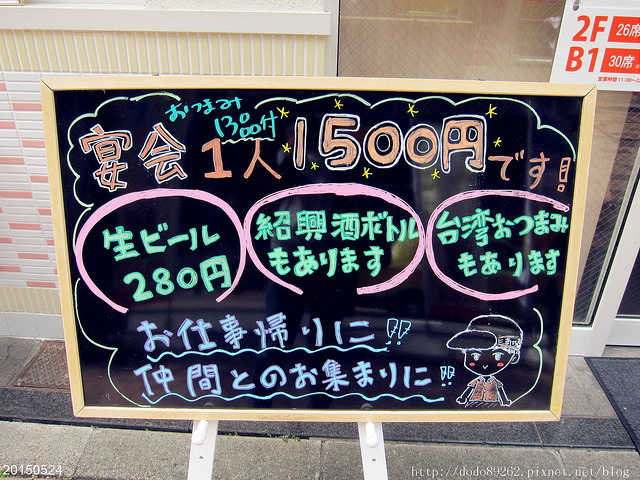 2F 26席
B1 30席
おつまみ
13品付
宴会1人1500円です!
生ビール
280円
紹興酒ボトル
もあります
台湾おつまみ
もあります
お仕事帰りに!!
仲間とのお集まりに!!
20150524
http://dodo89262.pixnet.net/blog